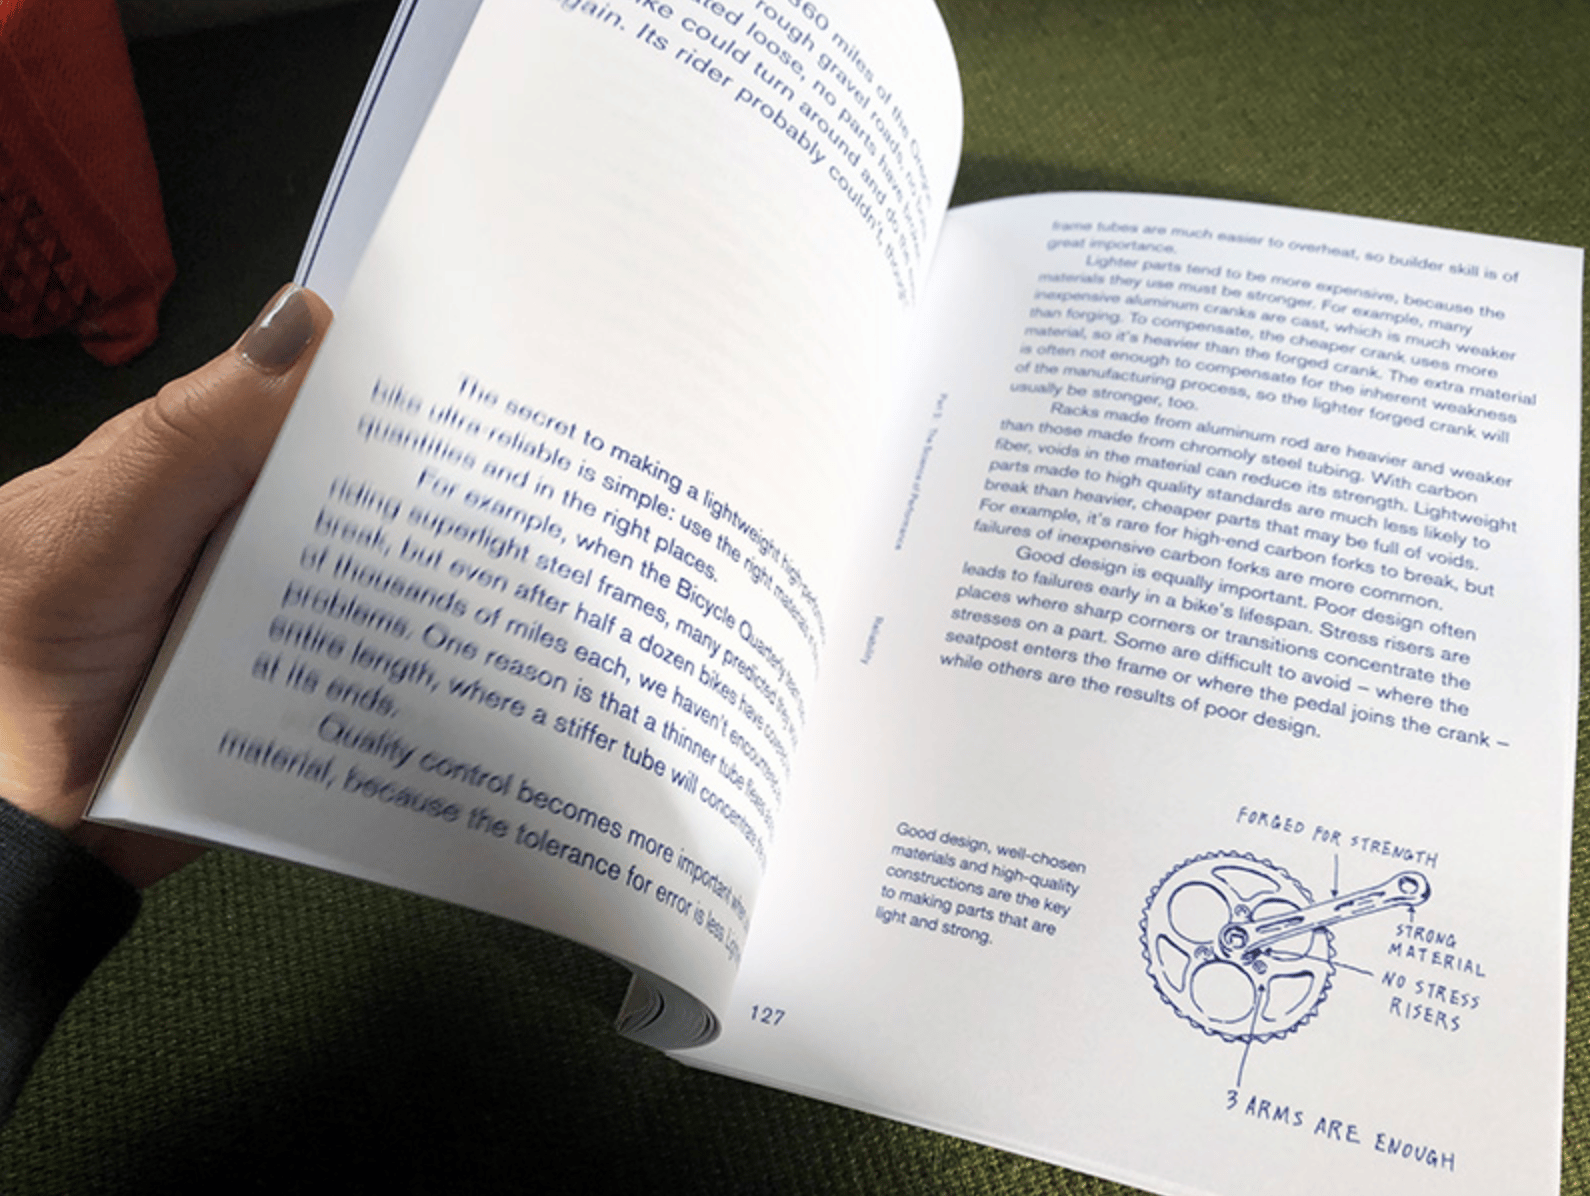 360 miles of the
rough gravel roads, no
loose, no parts have
could turn around and do the
again. Its rider probably couldn't, though
The secret to making a lightweight
bike ultra-reliable is simple: use the right materials
quantities and in the right places.
For example, when the Bicycle Quarterly
riding superlight steel frames, many predicted they
break, but even after half a dozen bikes have covered
of thousands of miles each, we haven't encountered
problems. One reason is that a thinner tube flexes
entire length, where a stiffer tube will concentrate
at its ends.
Quality control becomes more important when
material, because the tolerance for error is less.
frame tubes are much easier to overheat, so builder skill is of
great importance.
Lighter parts tend to be more expensive, because the
materials they use must be stronger. For example, many
inexpensive aluminum cranks are cast, which is much weaker
than forging. To compensate, the cheaper crank uses more
material, so it's heavier than the forged crank. The extra material
is often not enough to compensate for the inherent weakness
of the manufacturing process, so the lighter forged crank will
usually be stronger, too.
Racks made from aluminum rod are heavier and weaker
than those made from chromoly steel tubing. With carbon
fiber, voids in the material can reduce its strength. Lightweight
parts made to high quality standards are much less likely to
break than heavier, cheaper parts that may be full of voids.
For example, it's rare for high-end carbon forks to break, but
failures of inexpensive carbon forks are more common.
Good design is equally important. Poor design often
leads to failures early in a bike's lifespan. Stress risers are
places where sharp corners or transitions concentrate the
stresses on a part. Some are difficult to avoid – where the
seatpost enters the frame or where the pedal joins the crank –
while others are the results of poor design.
The Science of Performance
Reliability
Good design, well-chosen
materials and high-quality
constructions are the key
to making parts that are
light and strong.
127
FORGED FOR STRENGTH
STRONG
MATERIAL
NO STRESS
RISERS
3 ARMS ARE ENOUGH